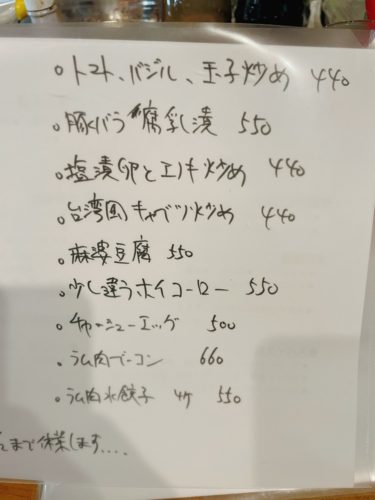 。トマト、バジル、玉子炒め 440
。豚バラ腐乳漬 550
。塩漬卵とエノキ炒め 440
。台湾風キャベツ炒め 440
。麻婆豆腐 550
。少し違うホイコーロー 550
。チャーシューエッグ 500
。ラム肉ベーコン 660
。ラム肉水餃子 4ケ 550
まで休業します....